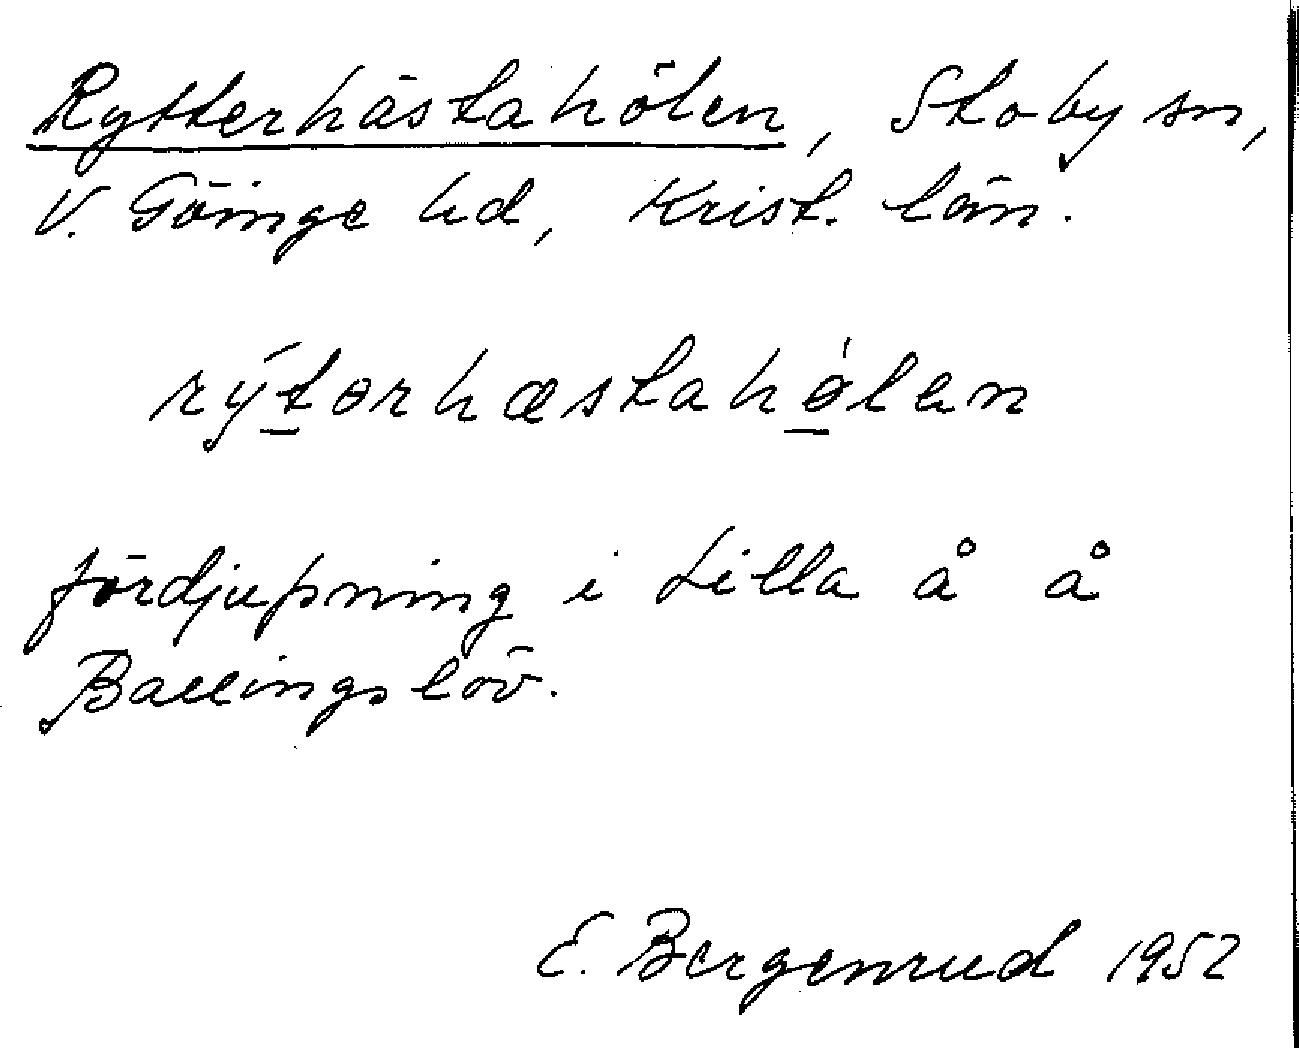 Rytterhästahölen, Stoby sn,
V. Göinge hd, Krist. län.
rýtərhæstahø̀lən
fördjupning i Lilla å å
Ballingslöv.
E. Bergenrud 1952